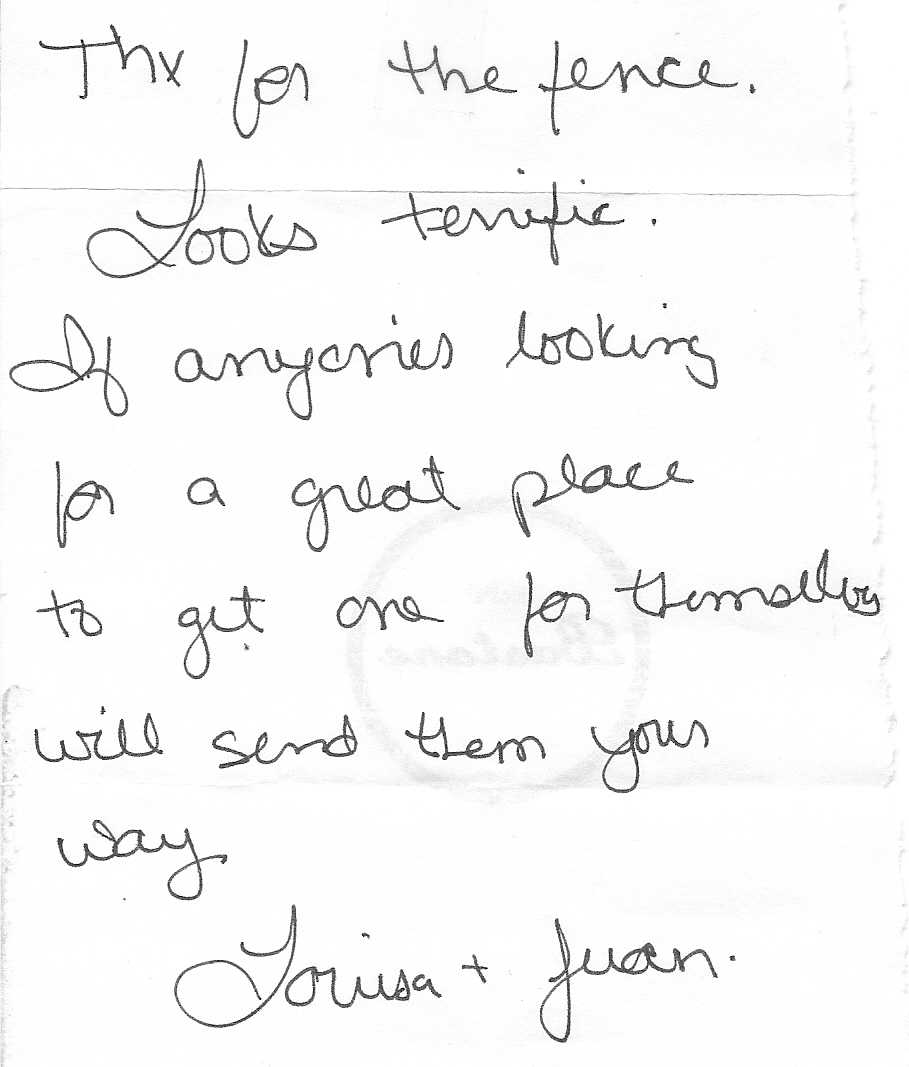 Thx for the fence.
Looks terrific.
If anyones looking
for a great place
to get one for themselves
will send them your
way
Louisa + Juan.